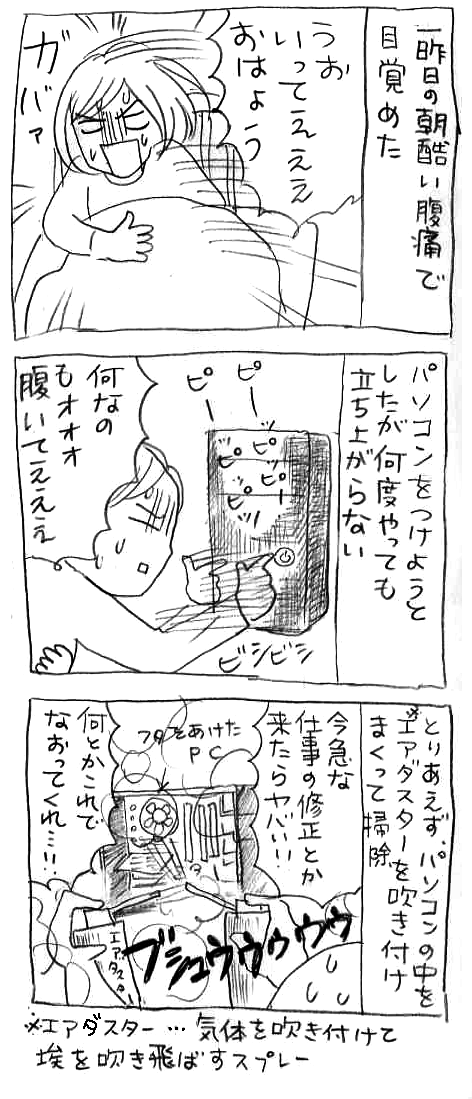 一昨日の朝酷い腹痛で
目覚めた
うお
いってえええ
おはよう
ガバァ
パソコンをつけようと
したが何度やっても
立ち上がらない
ピー
ピー
ピッ
ピピ
ピー
ピッ
何なの
もオオオ
腹いてえええ
ビシビシ
とりあえず、パソコンの中を
※エアダスターを吹き付け
まくって掃除
今急な
仕事の修正とか
来たらヤバい!!
フタをあけた
PC
何とかこれで
なおってくれ…!!
エアダスター
ブシュウゥゥウゥ
※エアダスター…気体を吹き付けて
埃を吹き飛ばすスプレー